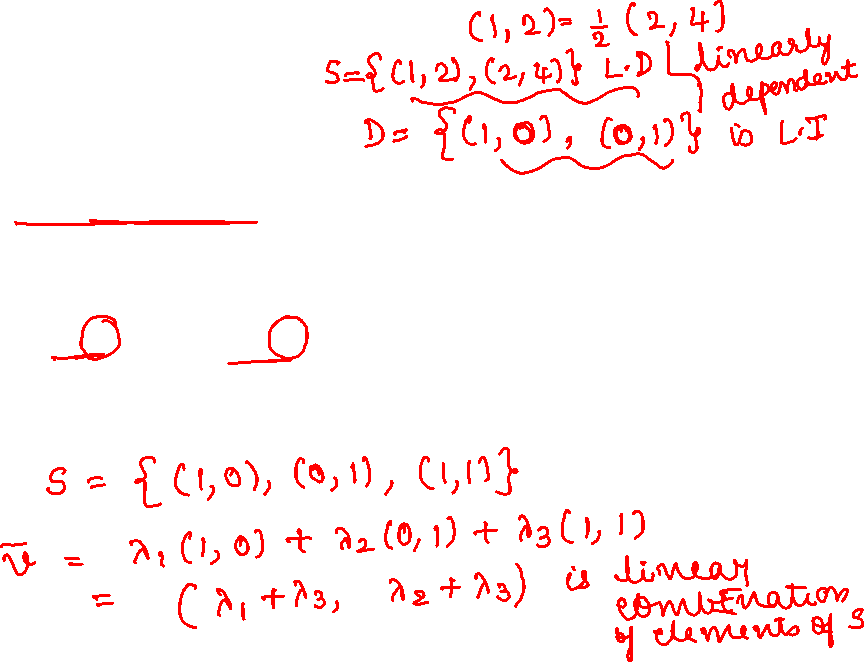 (1,2) = 1/2 (2,4)
S={(1,2),(2,4)} L.D linearly dependent
D= {(1,0), (0,1)} is L.I
S = { (1,0), (0,1), (1,1)}
v̄ = λ1(1,0) + λ2(0,1) + λ3(1,1)
= (λ1+λ3, λ2+λ3) is linear
combination
of elements of S